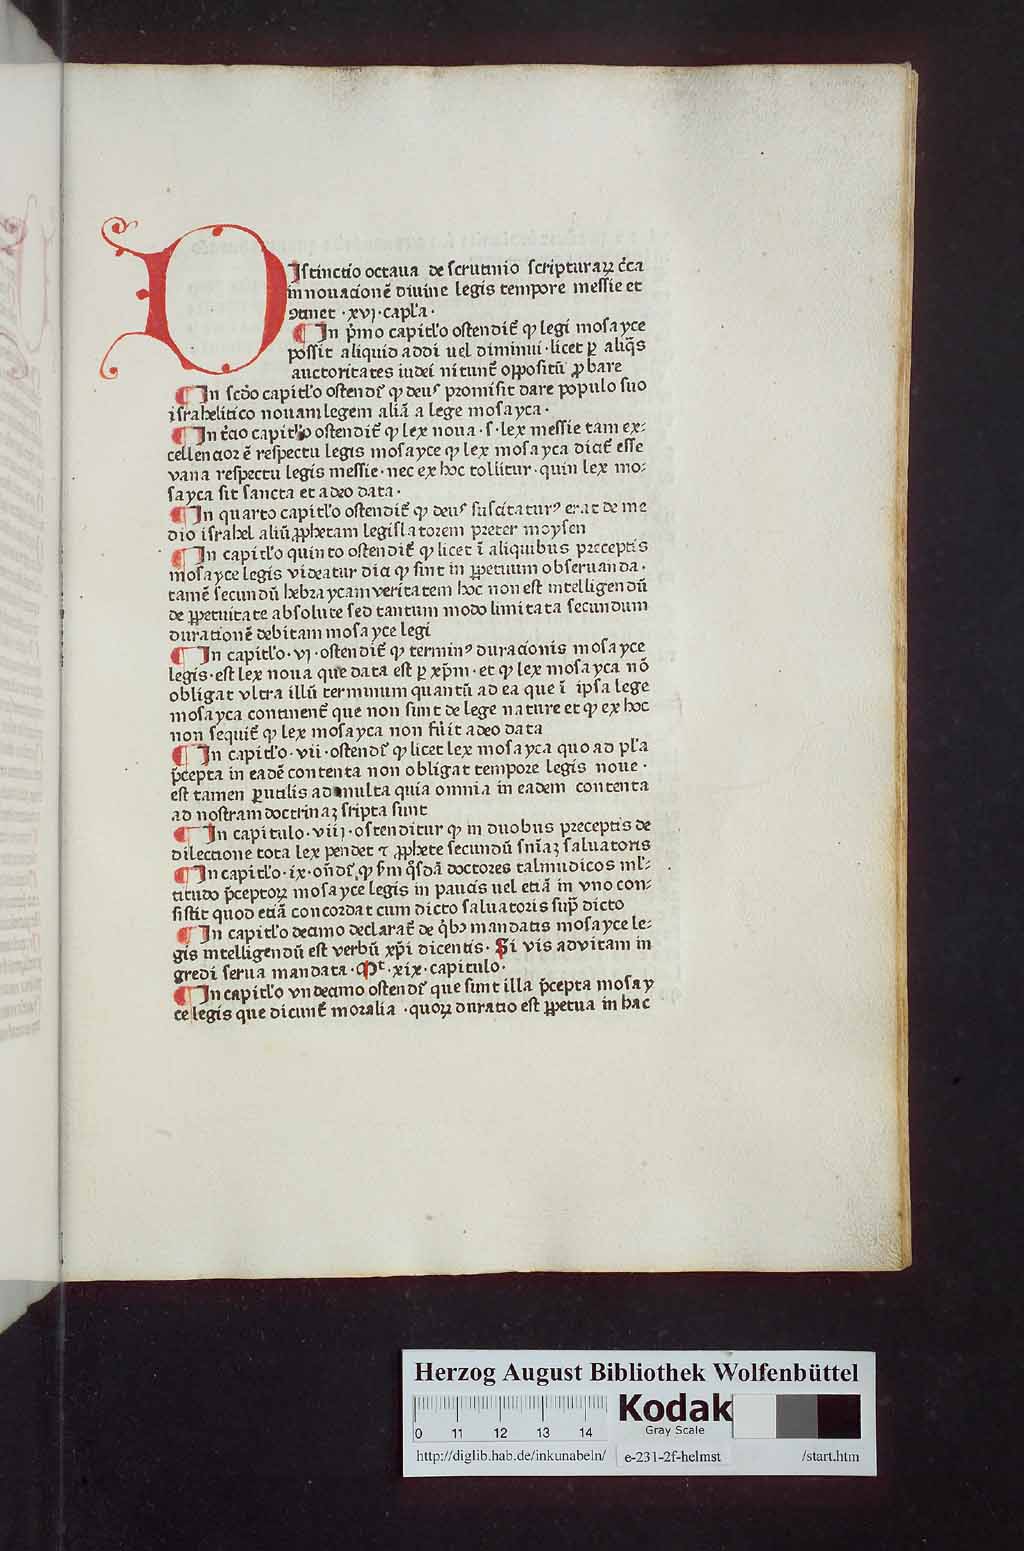 DIstinctio octaua de scrutinio scripturaꝝ c̃ca
in nouacionẽ diuine legis tempore messie et
ↄtinet ·xvj· capl̃a·
In p̃mo capitl̃o ostendit̃ ꝙ legi mosayce
possit aliquid addi uel diminui· licet ꝑ aliq̃s
auctoritates iudei nitunt̃ oppositũ ꝓbare
In scd̃o capitl̃o ostendr̃ ꝙ deuꝰ promisit dare populo suo
israhelitico nouam legem aliã a lege mosayca·
In t̃cio capitl̃o ostendit̃ ꝙ lex noua ·s· lex messie tam ex-
cellencior ẽ respectu legis mosayce ꝙ lex mosayca dicit̃ esse
vana respectu legis messie· nec ex hoc tollitur· quin lex mo-
sayca sit sancta et a deo data·
In quarto capitl̃o ostendit̃ ꝙ deuꝰ suscitaturꝰ erat de me
dio israhel aliũ ꝓphetam legislatorem preter moysen
In capitl̃o quinto ostendit̃ ꝙ licet ĩ aliquibus preceptis
mosayce legis videatur dici ꝙ sint in ꝑpetuum obseruanda·
tamẽ secundũ hebraycam veritatem hoc non est intelligendũ
de ꝑpetuitate absolute sed tantum modo limitata secundum
durationẽ debitam mosayce legi
In capitl̃o· vj· ostendit̃ ꝙ terminꝰ duracionis mosayce
legis· est lex noua que data est ꝑ xp̃m· et ꝙ lex mosayca nõ
obligat vltra illũ terminum quantũ ad ea que ĩ ipsa lege
mosayca continent̃ que non sunt de lege nature et ꝙ ex hoc
non sequit̃ ꝙ lex mosayca non fũit a deo data
In capitl̃o· vii· ostendr̃ ꝙ licet lex mosayca quo ad pl̃a
p̃cepta in eadẽ contenta non obligat tempore legis noue·
est tamen ꝑutilis ad multa quia omnia in eadem contenta
ad nostram doctrinaꝫ scripta sunt
In capitulo· viij· ostenditur ꝙ in duobus preceptis de
dilectione tota lex pendet ⁊ ꝓphete secundũ sñiaꝫ saluatoris
In capitl̃o· ix· oñdr̃ ꝙ sm̃ q̃sdã doctores talmudicos ml̃-
titudo p̃ceptoꝝ mosayce legis in paucis uel etiã in vno con-
sistit quod etiã concordat cum dicto saluatoris sup̃ dicto
In capitl̃o decimo declarat̃ de q̃bꝫ mandatis mosayce le-
gis intelligendũ est verbũ xp̃i dicentis· Si vis ad vitam in
gredi serua mandata· Mt· xix· capitulo·
In capitl̃o vndecimo ostendr̃ que sunt illa p̃cepta mosay
ce legis que dicunt̃ moralia ·quoꝝ duratio est ꝑpetua in hac
Herzog August Bibliothek Wolfenbüttel
Kodak
Gray Scale
0 11 12 13 14
http://diglib.hab.de/inkunabeln/ e-231-2f-helmst /start.htm